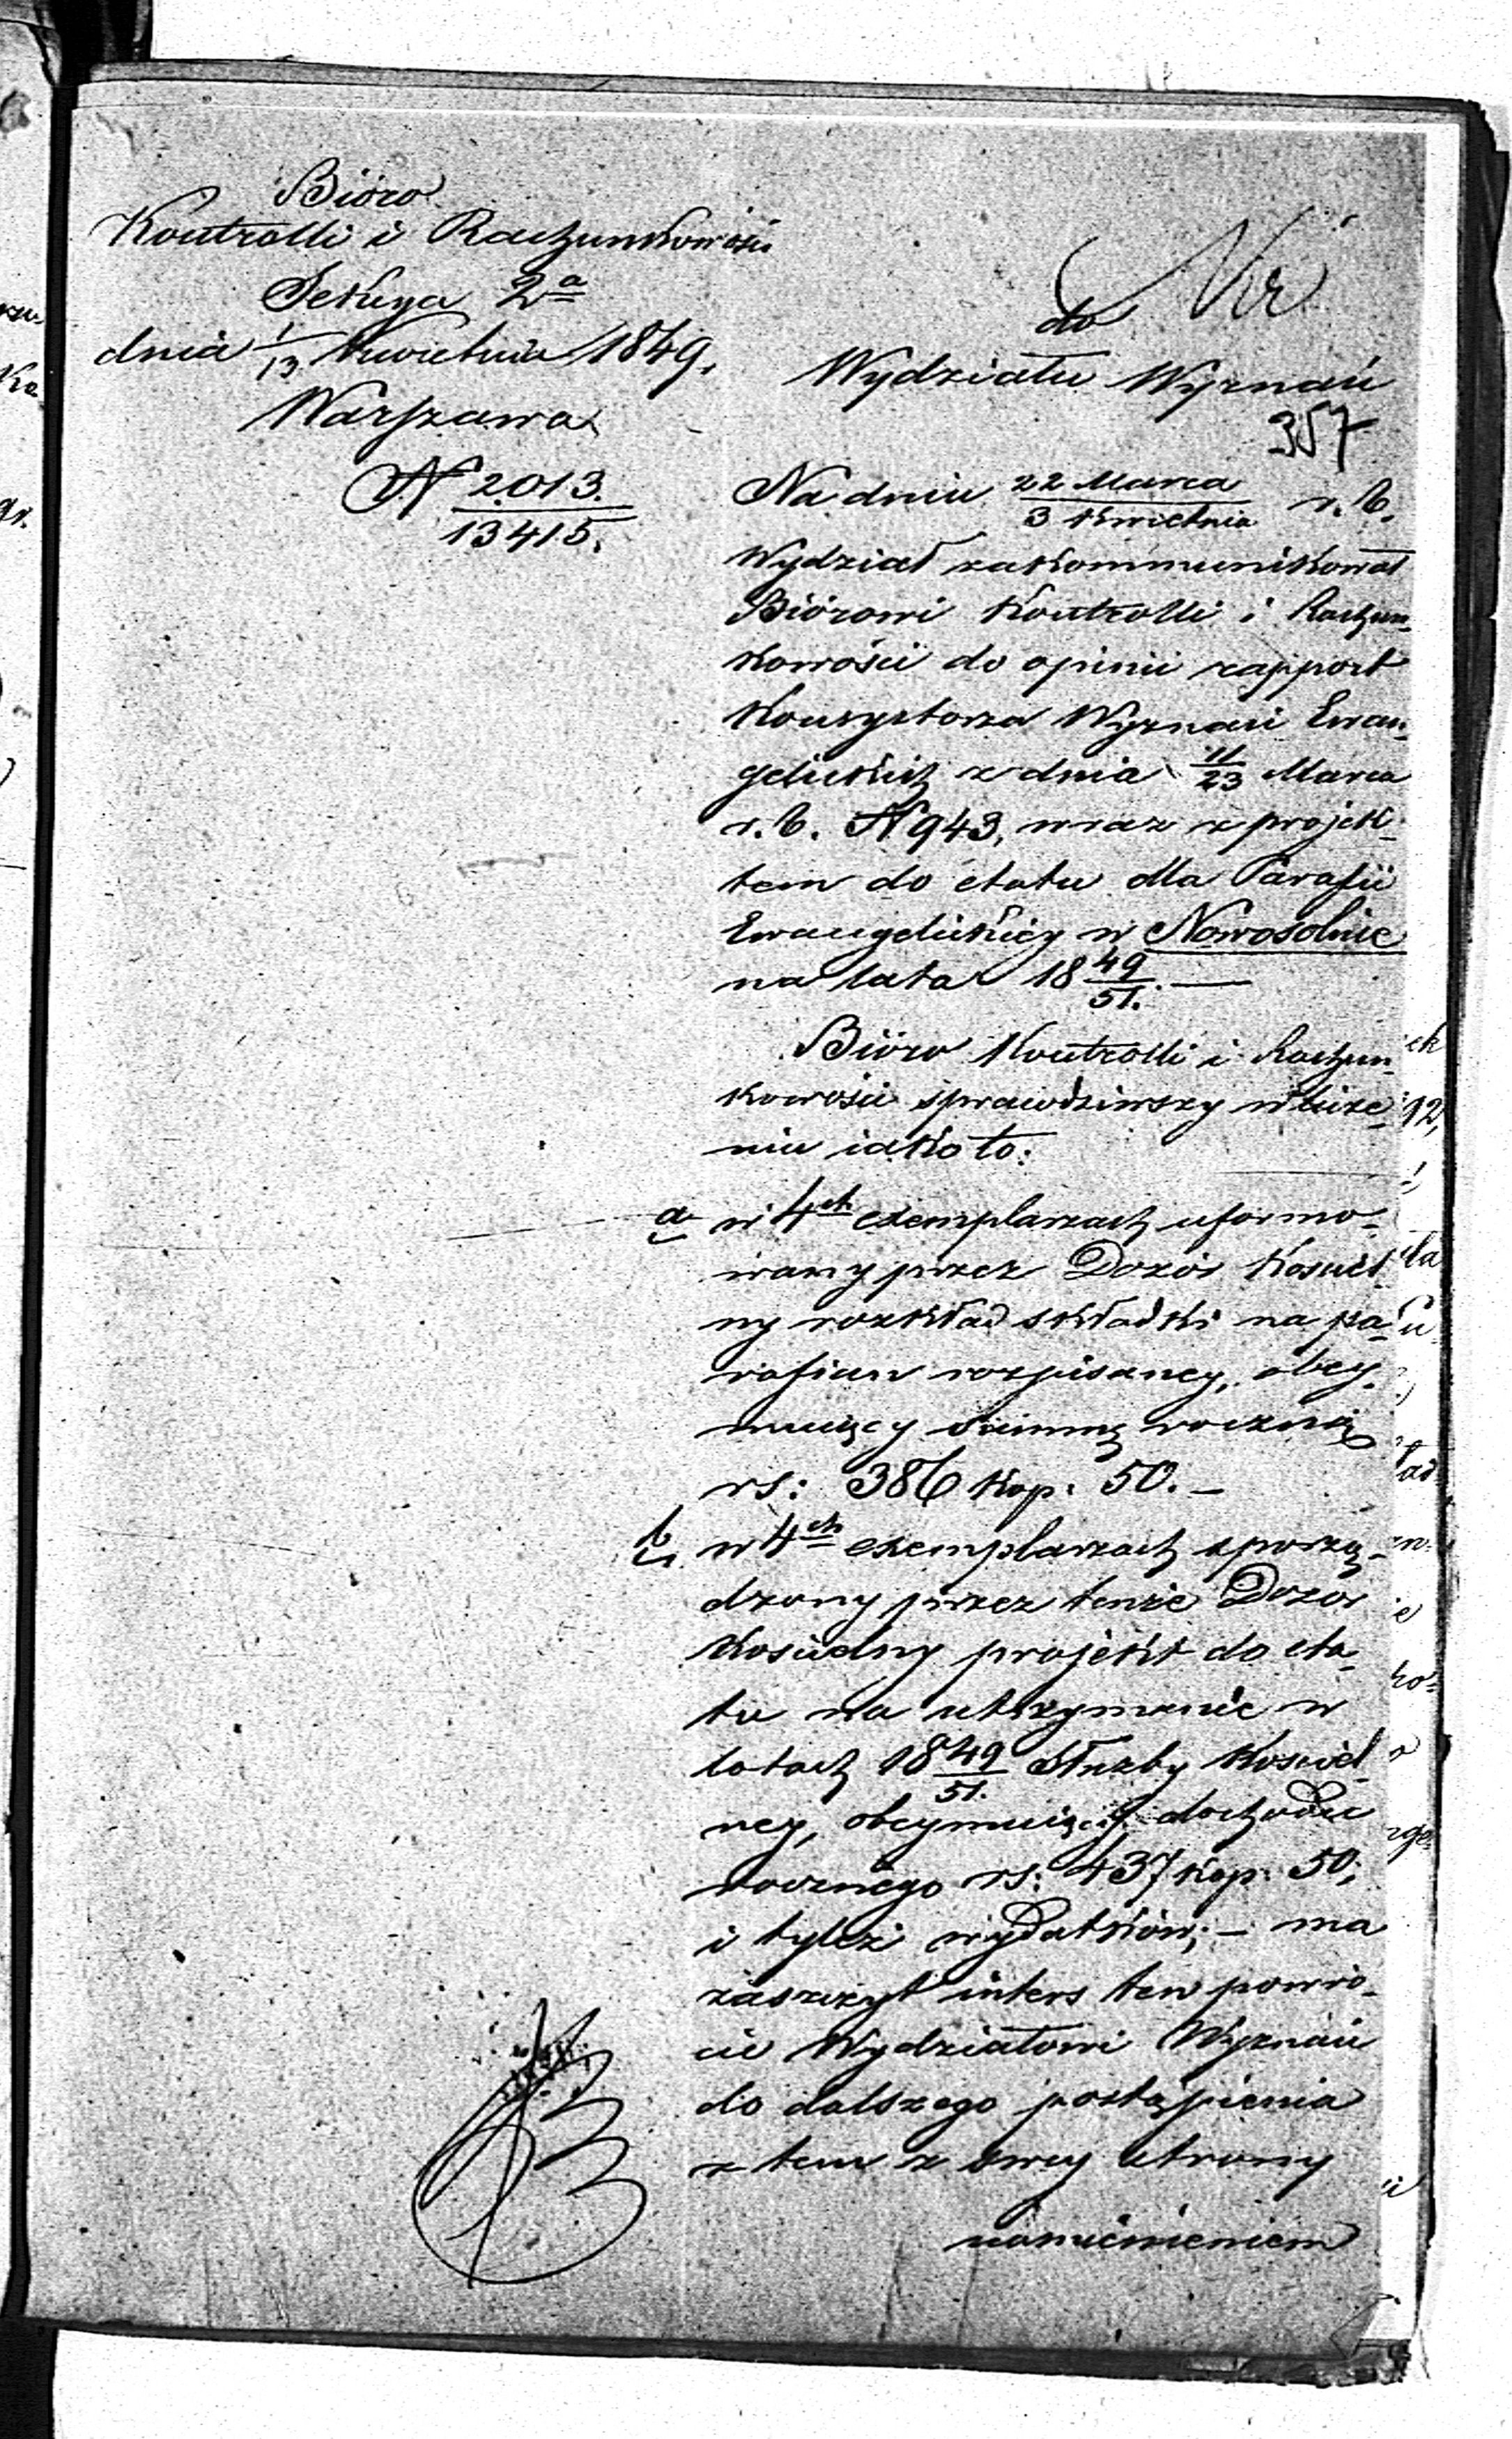 Bióro
Kontrolli i Rachunkowości
Sekcya 2<sup>a</sup>
dnia 1/13 Kwietnia 1849.
Warszawa
N 2013./13415.
do
Wydziału Wyznań
357
Na dniu 22 Marca/3 Kwietnia r. b.
Wydział zakommunikował
Biórowi Kontrolli i Rachun-
kowości do opinii rapport
Konsystorza Wyznań Ewan-
gelickich z dnia 11/23 Marca
r. b. N 943, wraz z projek-
tem do etatu dla Parafii
Ewangelickiey w Nowosolnie
na lata 18 49/51. —
Bióro Kontrolli i Rachun-
kowości sprawdziwszy w licze-
niu iako to:
a w 4ch exemplarzach uformo-
wany przez Dozór Kościel-
ny rozkład składki na pa-
rafian rozpisaney, obey-
muiący summę roczną
rs: 386 kop: 50. —
b, w 4ch exemplarzach sporzą-
dzony przez tenże Dozór
Kościelny projekt do eta-
tu na utrzymanie w
latach 18 49/51. Służby Kościel-
ney, obeymuiący dochodu
rocznego rs: 437 kop: 50,
i tyleż wydatków; — ma
zaszczyt interes ten powró-
cić Wydziałowi Wyznań
do dalszego postąpienia
z tem z swey strony
nadmienieniem